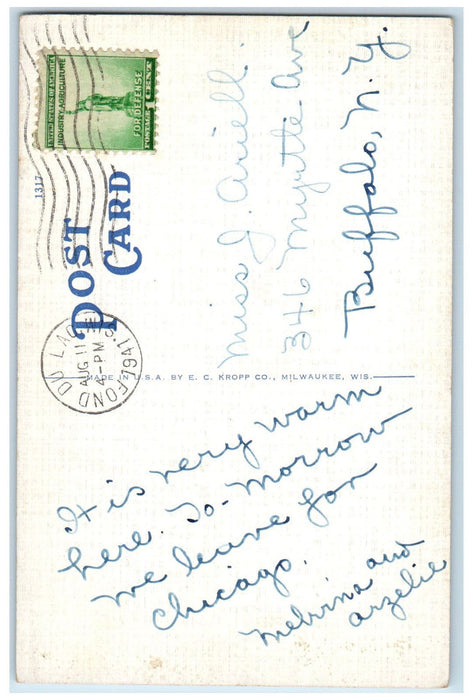 UNITED STATES OF AMERICA
INDUSTRY AGRICULTURE
FOR DEFENSE
POSTAGE 1 CENT
1317
POST
CARD
FOND DU LAC
AUG 11
6-PM
1941
WIS.
Miss J. Ariell.
346 Myrtle Ave
Buffalo, N.Y.
MADE IN U.S.A. BY E. C. KROPP CO., MILWAUKEE, WIS.
It is very warm
here. To-morrow
we leave for
Chicago.
Melrina and
arzelie